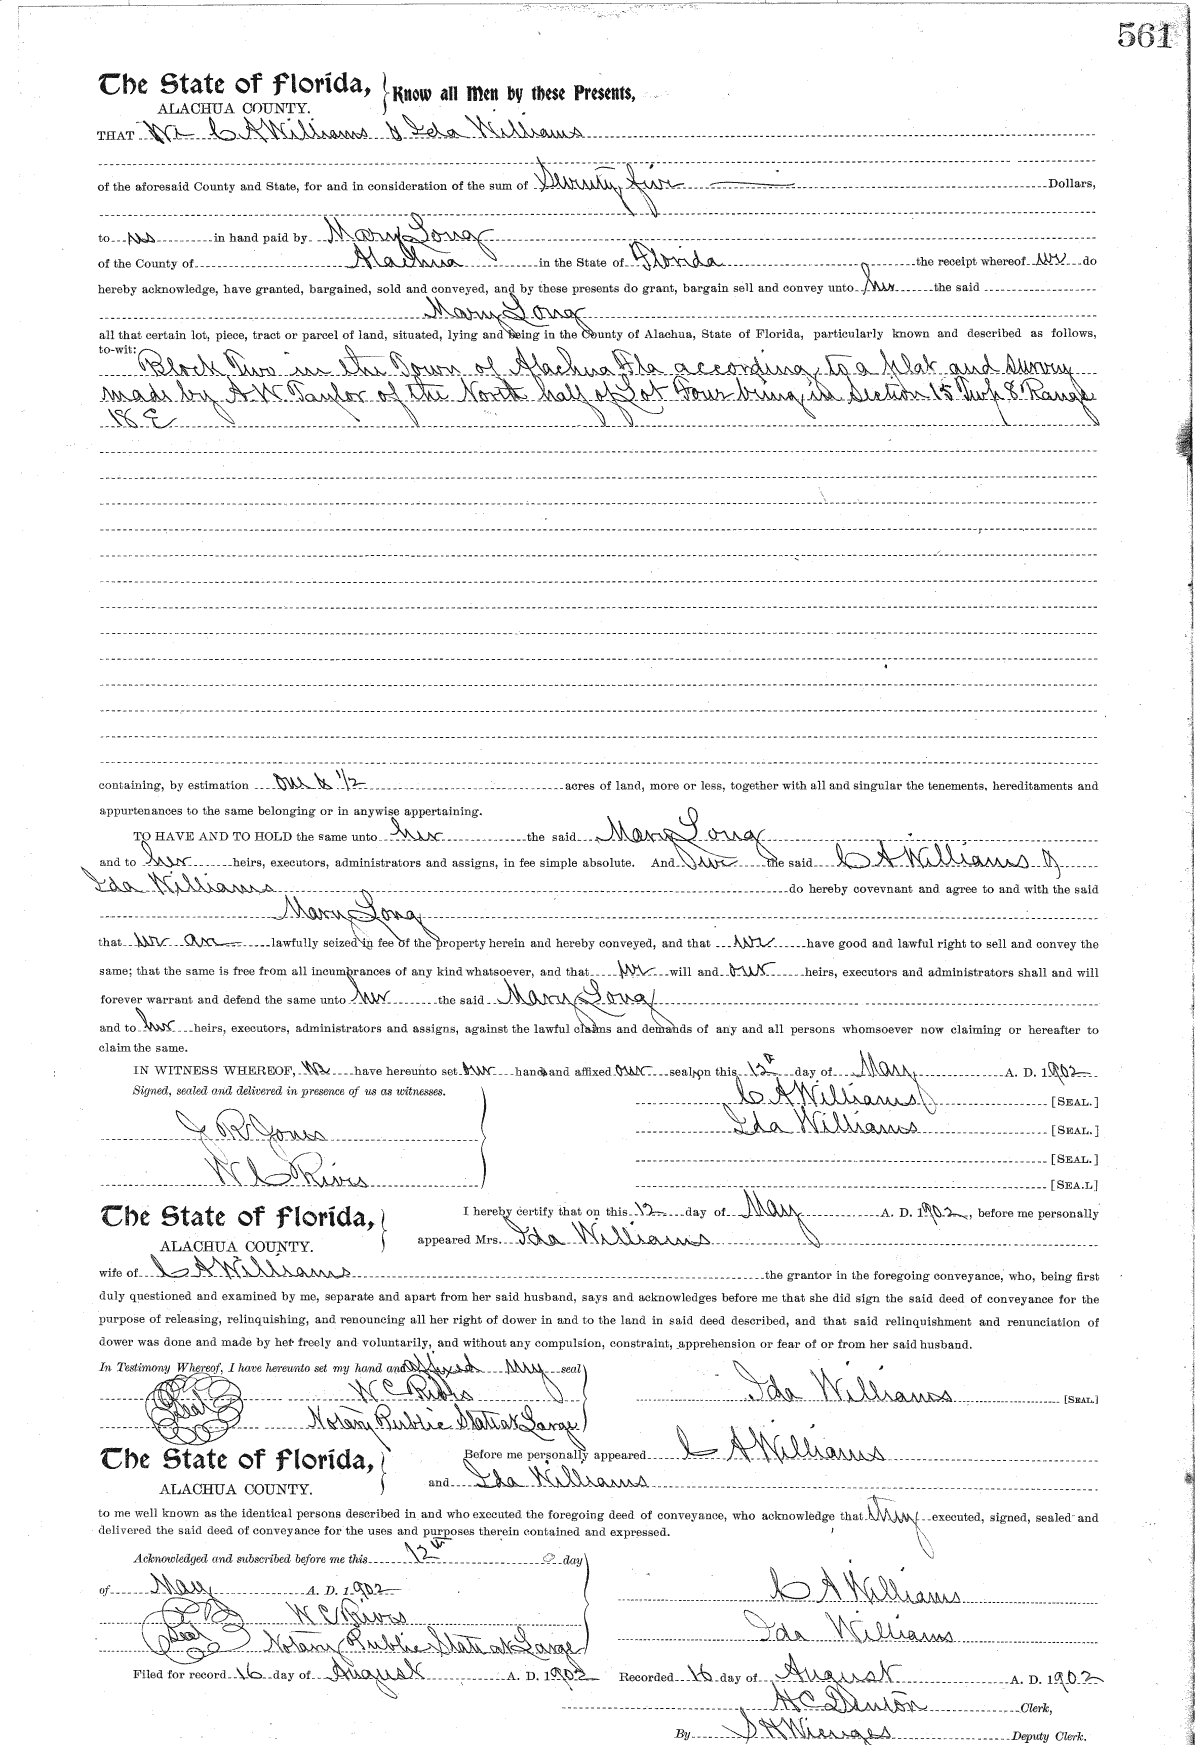 561
The State of Florida, Know all Men by these Presents,
ALACHUA COUNTY.
THAT We C A Williams & Ida Williams
of the aforesaid County and State, for and in consideration of the sum of Seventy five Dollars,
to us in hand paid by Mary Long
of the County of Alachua in the State of Florida the receipt whereof we do
hereby acknowledge, have granted, bargained, sold and conveyed, and by these presents do grant, bargain sell and convey unto her the said
Mary Long
all that certain lot, piece, tract or parcel of land, situated, lying and being in the County of Alachua, State of Florida, particularly known and described as follows,
to-wit: Block Two in the Town of Alachua Fla according to a plat and survey
made by A.W. Taylor of the North half of Lot Four being in Section 15 Twp 8 Range
18 E
containing, by estimation one & 1/2 acres of land, more or less, together with all and singular the tenements, hereditaments and
appurtenances to the same belonging or in anywise appertaining.
TO HAVE AND TO HOLD the same unto her the said Mary Long
and to her heirs, executors, administrators and assigns, in fee simple absolute. And we the said C A Williams &
Ida Williams do hereby covevnant and agree to and with the said
Mary Long
that we are lawfully seized in fee of the property herein and hereby conveyed, and that we have good and lawful right to sell and convey the
same; that the same is free from all incumbrances of any kind whatsoever, and that we will and our heirs, executors and administrators shall and will
forever warrant and defend the same unto her the said Mary Long
and to her heirs, executors, administrators and assigns, against the lawful claims and demands of any and all persons whomsoever now claiming or hereafter to
claim the same.
IN WITNESS WHEREOF, We have hereunto set our hands and affixed our seals on this 12th day of May A. D. 1902
Signed, sealed and delivered in presence of us as witnesses.
C A Williams [SEAL.]
J R Jones
Ida Williams [SEAL.]
[SEAL.]
W C Rivis
[SEA.L]
The State of Florida,
ALACHUA COUNTY.
I hereby certify that on this 12 day of May A. D. 1902, before me personally
appeared Mrs. Ida Williams
wife of C A Williams the grantor in the foregoing conveyance, who, being first
duly questioned and examined by me, separate and apart from her said husband, says and acknowledges before me that she did sign the said deed of conveyance for the
purpose of releasing, relinquishing, and renouncing all her right of dower in and to the land in said deed described, and that said relinquishment and renunciation of
dower was done and made by her freely and voluntarily, and without any compulsion, constraint, apprehension or fear of or from her said husband.
In Testimony Whereof, I have hereunto set my hand and affixed my seal
Seal W C Rivis Ida Williams [SEAL]
Notary Public State at Large
The State of Florida,
ALACHUA COUNTY.
Before me personally appeared C A Williams
and Ida Williams
to me well known as the identical persons described in and who executed the foregoing deed of conveyance, who acknowledge that they executed, signed, sealed and
delivered the said deed of conveyance for the uses and purposes therein contained and expressed.
Acknowledged and subscribed before me this 12th day
of May A. D. 1902 C A Williams
W C Rivis
Seal Notary Public State at Large Ida Williams
Filed for record 16 day of August A. D. 1902 Recorded 16 day of August A. D. 1902
H C Denton Clerk,
By S H Wienges Deputy Clerk.